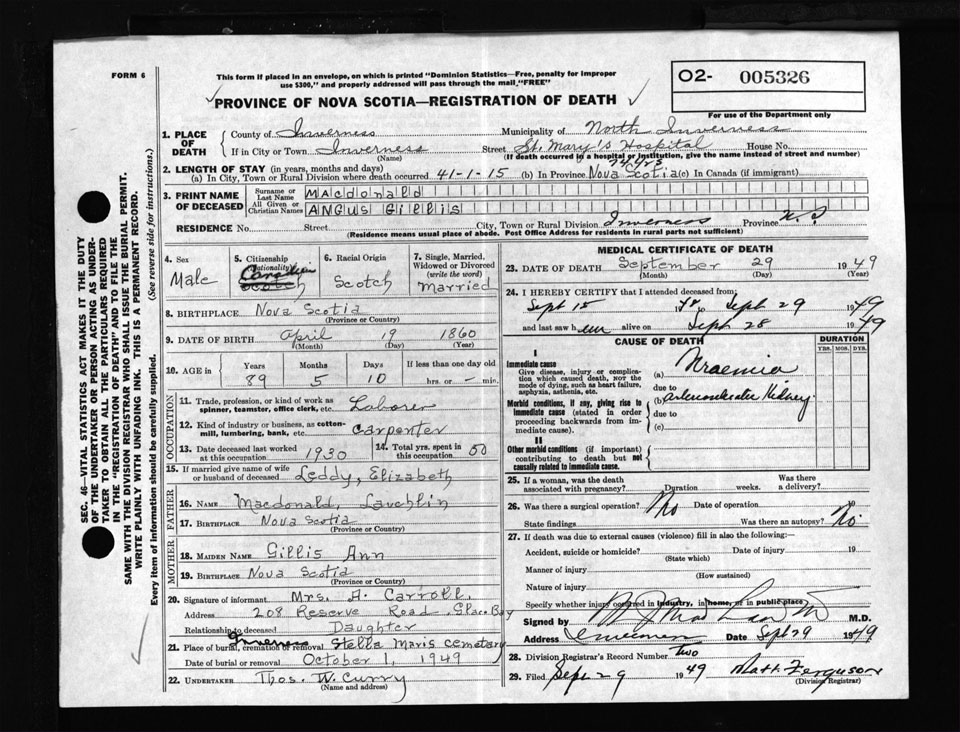 FORM 6
This form if placed in an envelope, on which is printed "Dominion Statistics—Free, penalty for improper
use $300," and properly addressed will pass through the mail "FREE"
O2- 005326
For use of the Department only
PROVINCE OF NOVA SCOTIA—REGISTRATION OF DEATH
SEC. 46—VITAL STATISTICS ACT MAKES IT THE DUTY
OF THE UNDERTAKER OR PERSON ACTING AS UNDER-
TAKER TO OBTAIN ALL THE PARTICULARS REQUIRED
IN THE "REGISTRATION OF DEATH" AND TO FILE THE
SAME WITH THE DIVISION REGISTRAR WHO SHALL ISSUE THE BURIAL PERMIT.
WRITE PLAINLY WITH UNFADING INK. THIS IS A PERMANENT RECORD.
Every item of information should be carefully supplied. (See reverse side for instructions.)
1. PLACE OF DEATH
County of Inverness Municipality of North Inverness
If in City or Town Inverness Street St. Mary's Hospital House No.
(Name) (If death occurred in a hospital or institution, give the name instead of street and number)
2. LENGTH OF STAY (in years, months and days)
(a) In City, Town or Rural Division where death occurred 41-1-15 (b) In Province Nova Scotia (c) In Canada (if immigrant)
3. PRINT NAME OF DECEASED
Surname or Last Name Macdonald
All Given or Christian Names ANGUS Gillis
RESIDENCE No. Street City, Town or Rural Division Inverness Province N. S.
(Residence means usual place of abode. Post Office Address for residents in rural parts not sufficient)
4. Sex Male
5. Citizenship (Nationality) Canadian Scotch
6. Racial Origin Scotch
7. Single, Married, Widowed or Divorced (write the word) Married
8. BIRTHPLACE Nova Scotia
(Province or Country)
9. DATE OF BIRTH April 19 1860
(Month) (Day) (Year)
10. AGE in Years Months Days If less than one day old
89 5 10 hrs. or — min.
OCCUPATION
11. Trade, profession, or kind of work as
spinner, teamster, office clerk, etc. Laborer
12. Kind of industry or business, as cotton-
mill, lumbering, bank, etc. Carpenter
13. Date deceased last worked
at this occupation 1930
14. Total yrs. spent in
this occupation 50
15. If married give name of wife
or husband of deceased Leddy, Elizabeth
FATHER
16. NAME Macdonald, Lauchlin
17. BIRTHPLACE Nova Scotia
(Province or Country)
MOTHER
18. MAIDEN NAME Gillis Ann
19. BIRTHPLACE Nova Scotia
(Province or Country)
20. Signature of informant Mrs. A. Carroll,
Address 208 Reserve Road, Glace Bay
Relationship to deceased Daughter
21. Place of burial, cremation or removal Inverness Stella Maris Cemetary
Date of burial or removal October 1, 1949
22. UNDERTAKER Thos. W. Curry
(Name and address)
MEDICAL CERTIFICATE OF DEATH
23. DATE OF DEATH September 29 1949
(Month) (Day) (Year)
24. I HEREBY CERTIFY that I attended deceased from:
Sept 15 to Sept 29 1949
and last saw him alive on Sept 28 1949
CAUSE OF DEATH DURATION
YRS. MOS. DYS.
I
Immediate cause
Give disease, injury or compli-
cation which caused death, not the
mode of dying, such as heart failure,
asphyxia, asthenia, etc.
(a) Uraemia
due to
Morbid conditions, if any, giving rise to
immediate cause (stated in order
proceeding backwards from im-
mediate cause).
(b) Kidney
due to
(c)
II
Other morbid conditions (if important)
contributing to death but not
causally related to immediate cause.
25. If a woman, was the death
associated with pregnancy? Duration weeks. Was there
a delivery?
26. Was there a surgical operation? No Date of operation 19
State findings Was there an autopsy? No
27. If death was due to external causes (violence) fill in also the following:—
Accident, suicide or homicide? Date of injury 19
(State which)
Manner of injury
(How sustained)
Nature of injury
Specify whether injury occurred in industry, in home, or in public place
Signed by M.D.
Address Inverness Date Sept 29 1949
28. Division Registrar's Record Number Two
29. Filed Sept 29 1949 Matt. Ferguson
(Division Registrar)